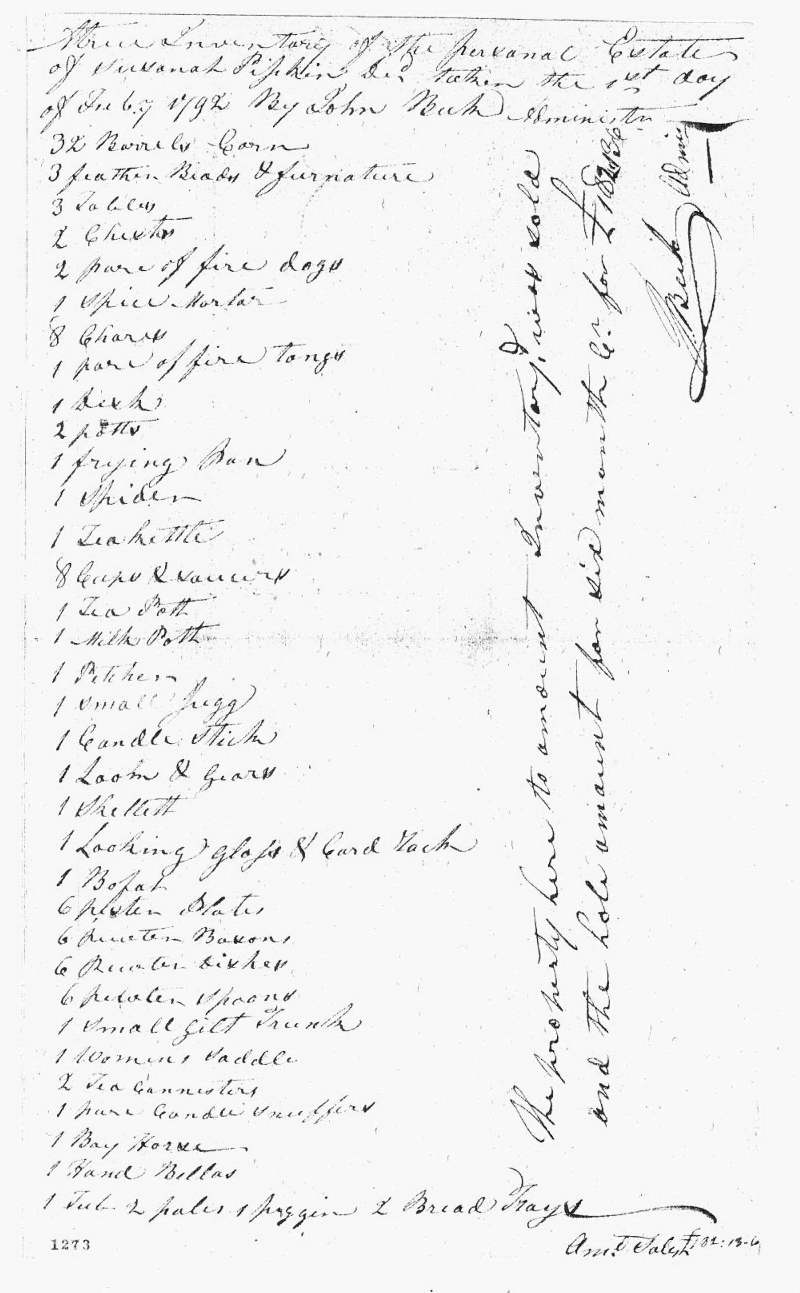 A true Inventory of the personal Estate
of Susanah Pipkin Decd taken the 1st day
of Feby 1792 By John Beck Administr
32 Barrels Corn
3 feather Beads & furnature
3 Tables
2 Chests
2 pare of fire dogs
1 Spice Mortar
8 Chares
1 pare of fire tongs
1 Desk
2 potts
1 frying Pan
1 Spider
1 Tea kettle
8 Cups & saucers
1 Tea Pott
1 Milk Pott
1 Pitcher
1 small Jugg
1 Candle Stick
1 Loom & Gears
1 Skellett
1 Looking glass & Card Rack
1 Bofat
6 Plates
6 pewter Basons
6 Pewter Dishes
6 pewter spoons
1 small gilt Trunk
1 Womens Saddle
2 Tea Cannesters
1 pare Candle snuffers
1 Bay Horse
1 Hand Bellas
1 Tub 2 pales 1 piggin 2 Bread Trays
Amt Sales £182:13.6
1273
The property here to amount Inventoryd was sold
and the hole amount for six months Cr for £182
J Beck Admr